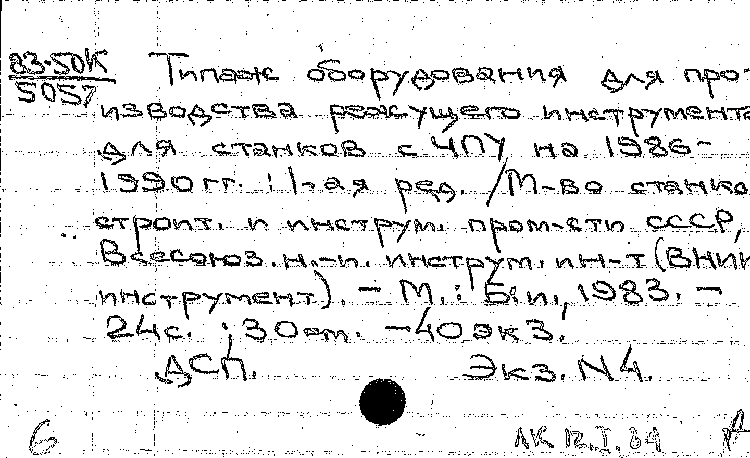 83-50К Типаж оборудования для про-
5057 изводства режущего инструмента
для станков с ЧПУ на 1986-
1990 гг. : 1-ая ред. / М-во станко
строит. и инструм. пром-сти СССР,
Всесоюз. н.-и. инструм. ин-т (ВНИИ
инструмент). - М. : Б.и., 1983. -
24 с. ; 30 см. - 40 экз.
ДСП. Экз. N4.
6 ЛК 12.I.84